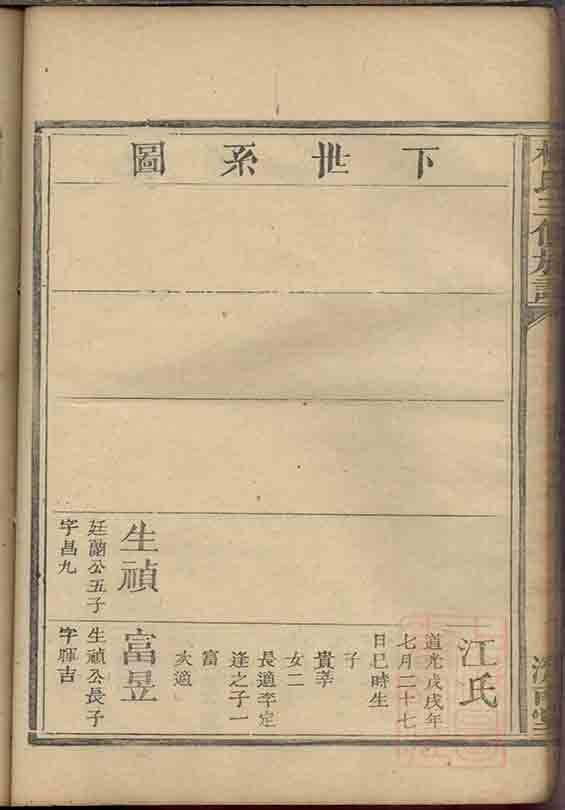 氏三修族譜
下世系圖
生禎
廷蘭公五子
字昌九
江氏
道光戊戌年
七月二十七
日巳時生
子
貴
女二
長適李定
逢之子一
富
次適
富昱
生禎公長子
字暉吉